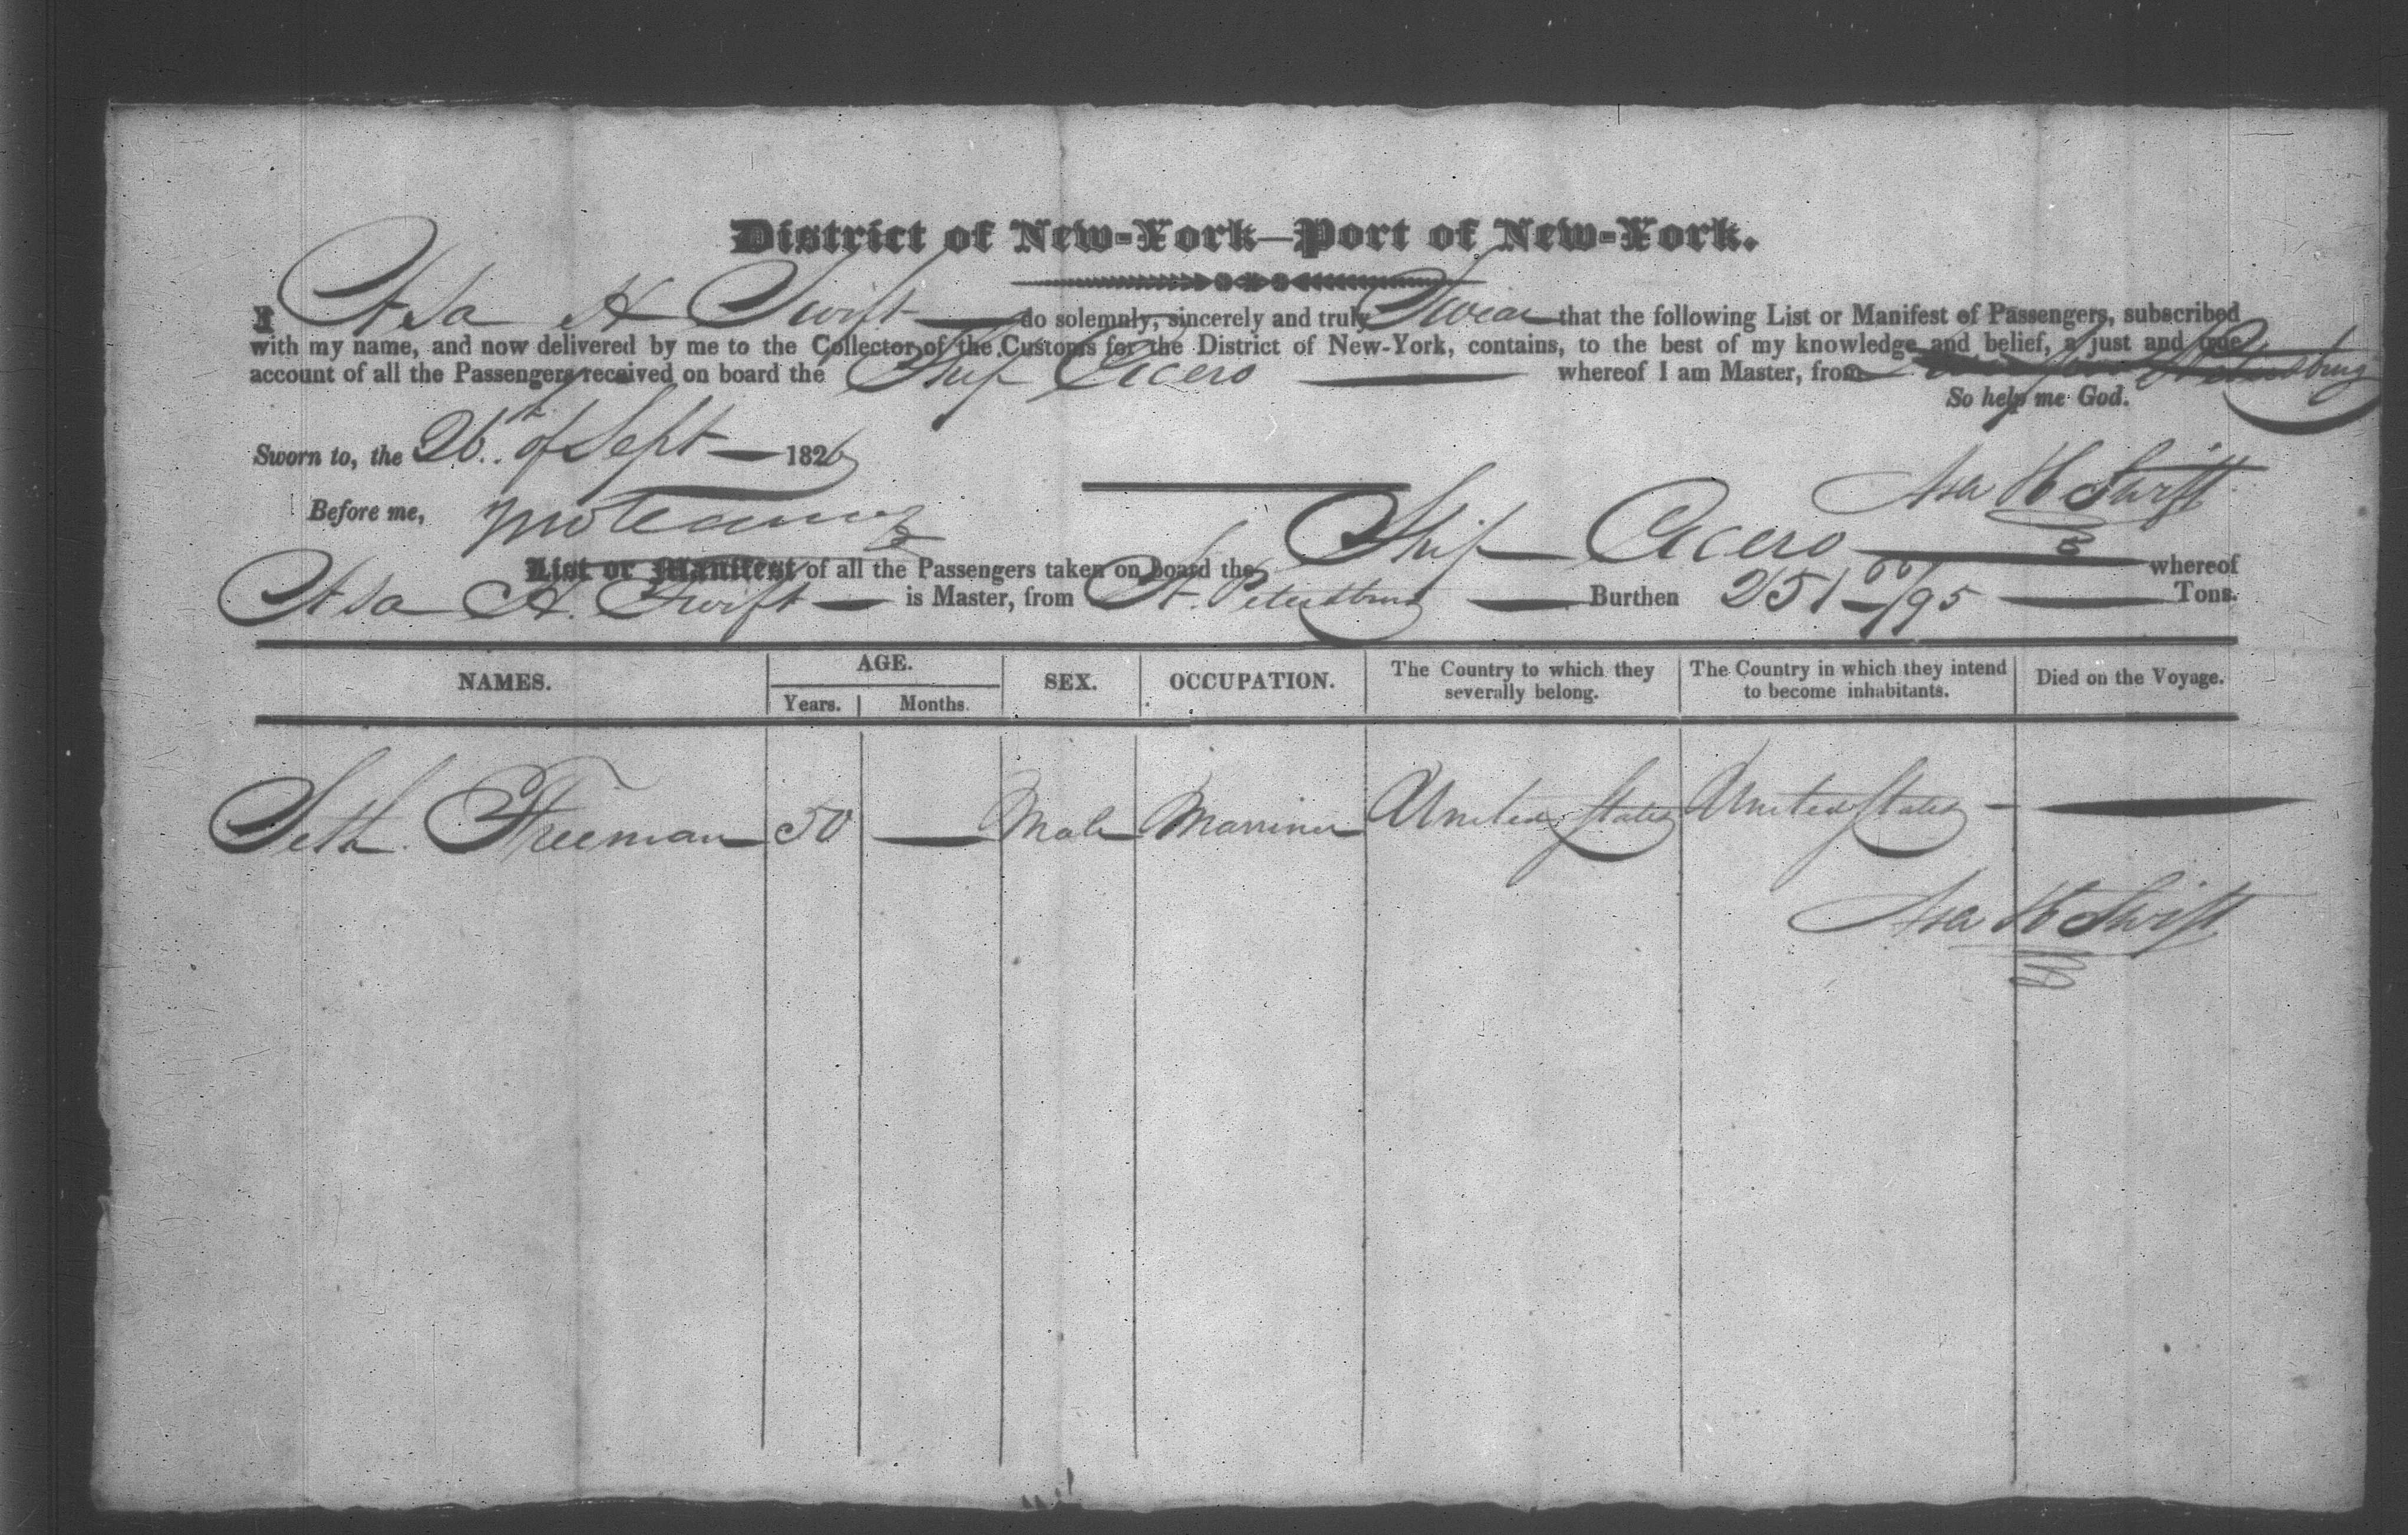 District of New-York—Port of New-York.
I Asa H Swift do solemnly, sincerely and truly Swear that the following List or Manifest of Passengers, subscribed
with my name, and now delivered by me to the Collector of the Customs for the District of New-York, contains, to the best of my knowledge and belief, a just and true
account of all the Passengers received on board the Ship Cicero whereof I am Master, from St Petersburg
So help me God.
Sworn to, the 26th of Sept 1826
Asa H Swift
Before me,
List or Manifest of all the Passengers taken on board the Ship Cicero whereof
Asa H. Swift is Master, from St. Petersburg Burthen 251 /95 Tons.
NAMES. AGE. SEX. OCCUPATION. The Country to which they severally belong. The Country in which they intend to become inhabitants. Died on the Voyage.
Years. Months.
Seth Freeman 50 — Male Marriner United States United States —
Asa H Swift